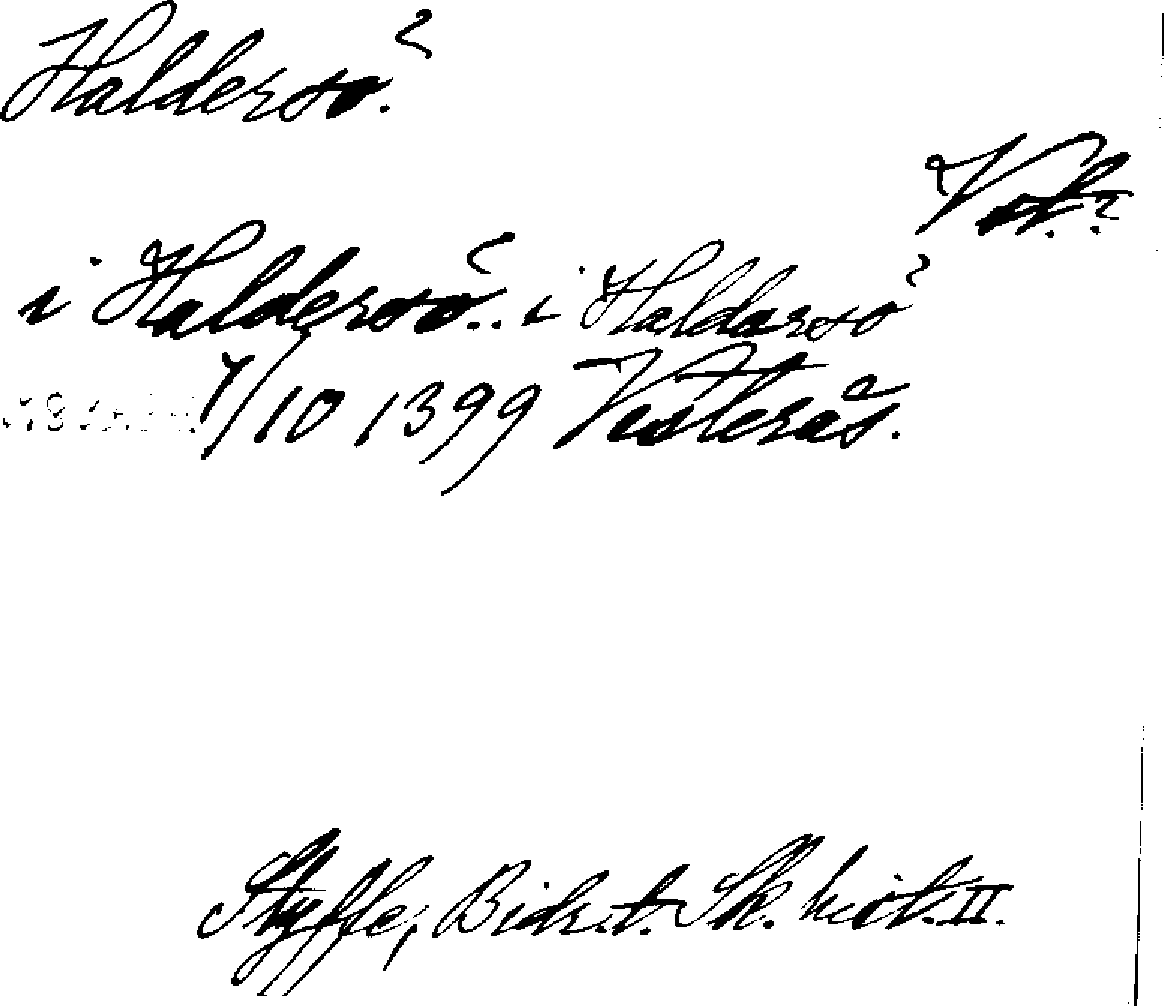 Haldersö.
i Halderssö.. i Haldarsö
7/10 1399 Vesterås.
Styffe, Bidr. t. Sk. hist. II.